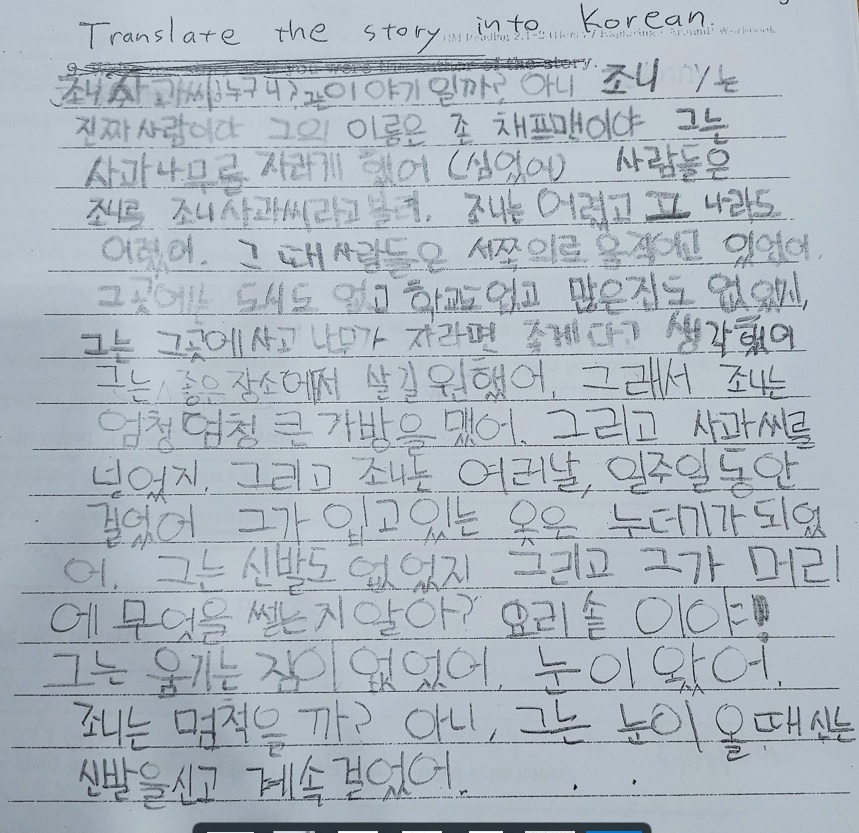 Translate the story into Korean.
조니 사과씨는 누구니? 그는 이야기 일까? 아니 조니 는
진짜 사람이다 그의 이름은 존 채프맨이야 그는
사과나무를 자라게 했어 (심었어) 사람들은
조니를 조니 사과씨라고 불러. 조니는 어렸고 그 나라도
어렸어. 그 때 사람들은 서쪽의로 움직이고 있었어.
그곳에는 도시도 없고 학교도 업고 많은 집도 없었지,
그는 그곳에 사고 나무가 자라면 좋게다고 생각했어
그는 좋은 장소에서 살길 원했어. 그래서 조니는
엄청 엄청 큰 가방을 맸어. 그리고 사과씨를
넣었지. 그리고 조니는 여러날, 일주일 동안
걸었어 그가 입고 있는 옷은 누더기가 되었
어. 그는 신발도 없었지 그리고 그가 머리
에 무엇을 썼는지 알아? 요리 솥 이야!
그는 움기는 짐이 없었어. 눈이 왔어.
조니는 멈췄을 까? 아니, 그는 눈이 올 때 신는
신발을 신고 계속 걸었어.